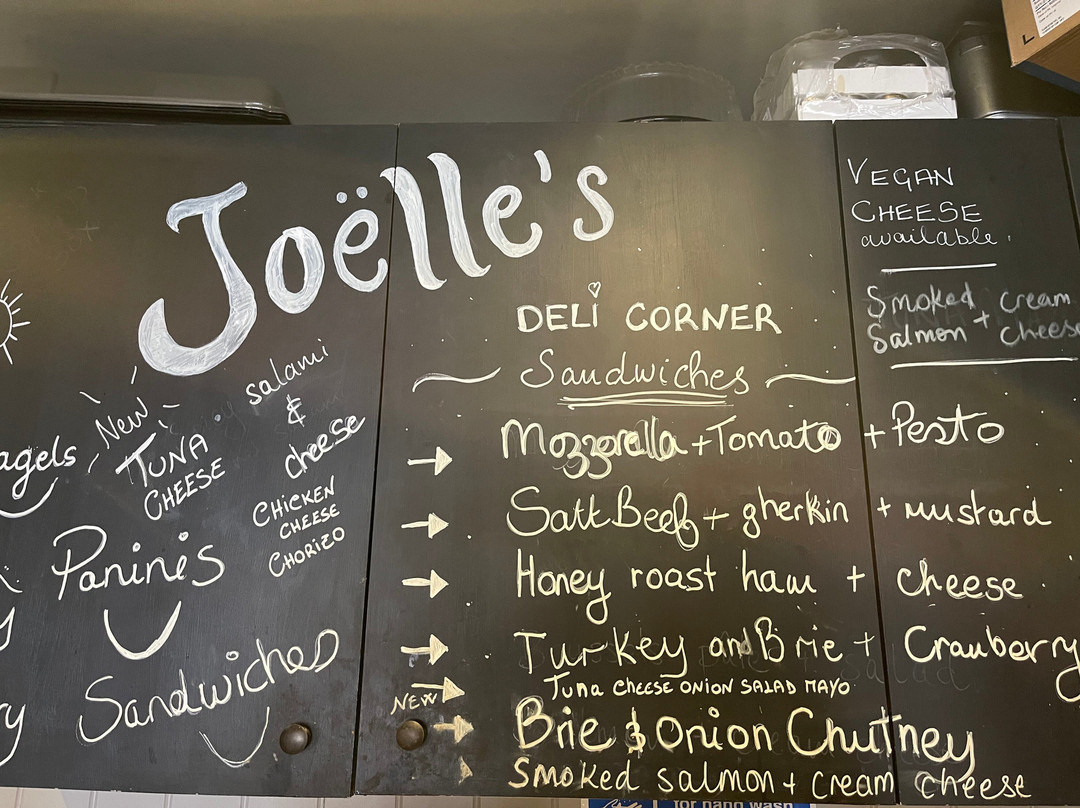 Joëlle's
agels
New
TUNA
CHEESE
salami
&
cheese
CHICKEN
CHEESE
CHORIZO
Paninis
Sandwiches
DELI CORNER
Sandwiches
Mozzarella + Tomato + Pesto
Salt Beef + gherkin + mustard
Honey roast ham + cheese
Turkey and Brie + Cranberry
Tuna CHEESE ONION SALAD MAYO
NEW
Brie & Onion Chutney
Smoked salmon + cream cheese
VEGAN
CHEESE
available.
Smoked
Salmon + cream
cheese
for hand wash